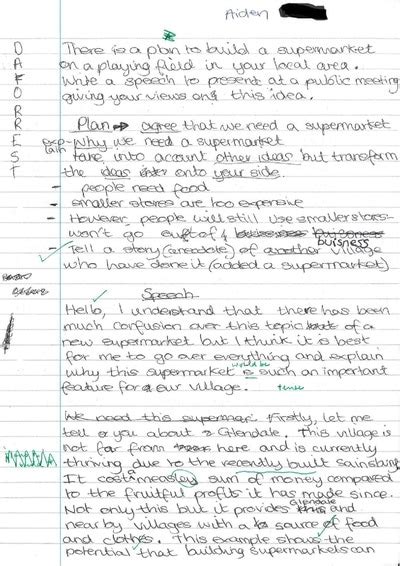 Aiden
D A F O R R E S T
There is a plan to build a supermarket
on a playing field in your local area.
Write a speech to present at a public meeting
giving your views on this idea.
Plan → agree that we need a supermarket
explain why we need a supermarket
take into account other ideas but transform
the ideas onto your side.
- people need food
- smaller stores are too expensive
- However people will still use smaller stores
won't go out of buisness
- Tell a story (anecdote) of another village
who have done it (added a supermarket)
Speech
Hello, I understand that there has been
much confusion over this topic of a
new supermarket but I think it is best
for me to go over everything and explain
why this supermarket is would be such an important
feature for our village. tense
We need this supermar. Firstly, let me
tell you about Glendale. This village is
not far from here and is currently
thriving due to the recently built Sainsburys.
It cost a measley sum of money compared
to the fruitful profits it has made since.
Not only this but it provides Glendale and
nearby villages with a source of food
and clothes. This example shows the
potential that building supermarkets can